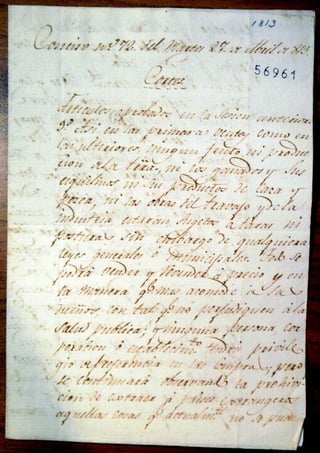 1813
Correo nº 73. del Martes 27. de Abril de 1813
56961
Cortes
Articulos aprobados en la sesion anterior:
qe. asi en las primeras ventas como en
las ulteriores, ningun fruto ni produc
cion de la tierra, ni los ganados y sus
esquilmos ni los productos de la caza y
pesca, ni las obras del trabajo y de la
industria estaran sujetas a tasas ni
posturas sin embargo de qualesquiera
leyes generales o municipales. Todo se
podrá vender y revender al precio y en
la manera qe. mas acomode a sus
dueños, con tal qe. no perjudiquen a la
salud publica; y ninguna persona cor
poracion o establecimto. tendrá privile
gio de preferencia en las compras; pero
se continuará observando la prohivi
cion de extraer a paises extrangeros
aquellas cosas qe. actualmte. no se pueden